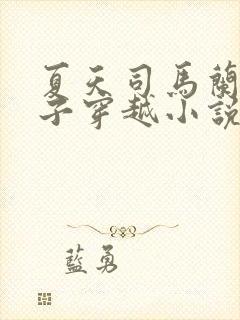 夏天司馬蘭
子穿越小說
藍勇